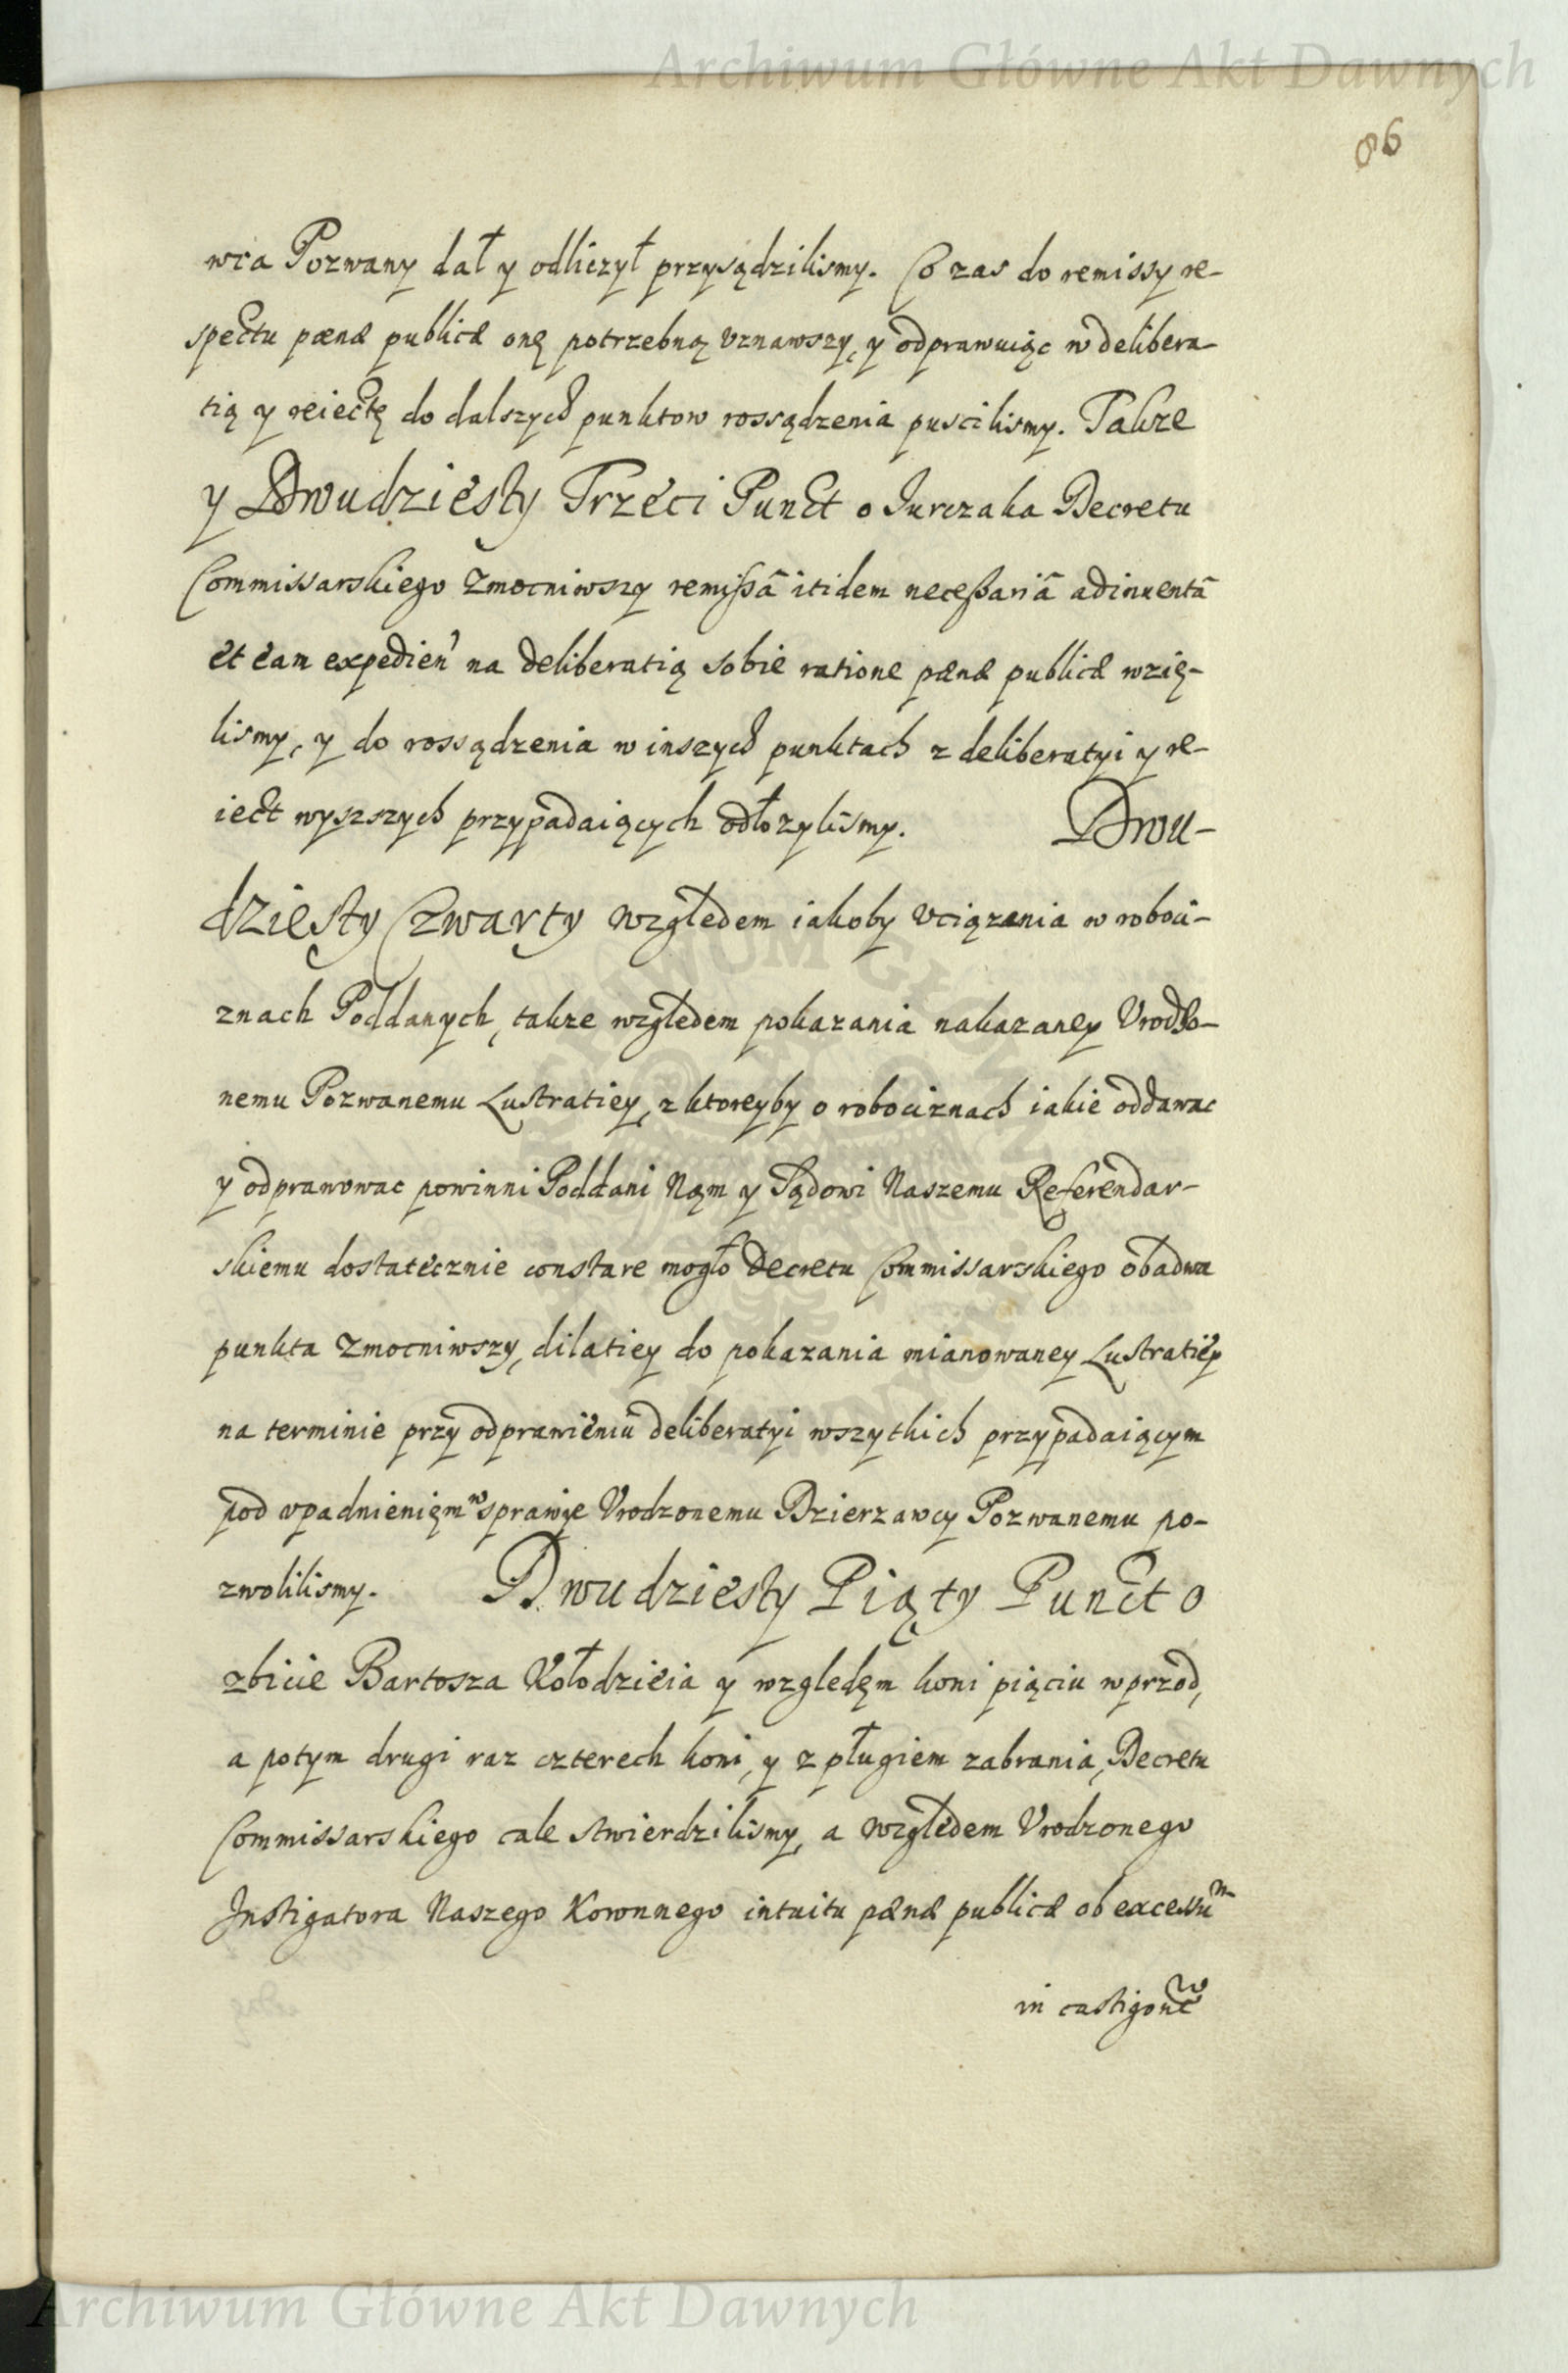 Archiwum Główne Akt Dawnych
86
wca Pozwany dał y odliczył przysądzilismy. Co zas do remissy re-
spectu pænæ publicæ onę potrzebną vznawszy, y odprawuiąc w delibera-
tią y reiectę do dalszych punktow rossądzenia puscilismy. Takze
y Dwudziesty Trzeci Punct o Jurczaka Decretu
Commissarskiego zmocniwszy remissâ itidem necessariâ adinventâ
et eam expedien' na deliberatią sobie ratione pænæ publicæ wzię-
lismy, y do rossądzenia w inszych punktach z deliberatyi y re-
iect wyszszych przypadaiących odłozylismy. Dwu-
dziesty Czwarty względem iakoby vciązania w roboci-
znach Poddanych, takze względem pokazania nakazaney Vrodzo-
nemu Pozwanemu Lustratiey, z ktoreyby o robociznach iakie oddawac
y odprawowac powinni Poddani Nąm y Sądowi Naszemu Referendar-
skiemu dostatecznie constare mogło Decretu Commissarskiego obadwa
punkta zmocniwszy, dilatiey do pokazania mianowaney Lustratiey
na terminie przy odprawieniu deliberatyi wszytkich przypadaiącym
pod vpadnienięm w sprawie Vrodzonemu Dzierzawcy Pozwanemu po-
zwolilismy. Dwudziesty Piąty Punct o
zbicie Bartosza Kołodzieia y względęm koni pięciu wprzod,
a potym drugi raz czterech koni, y z pługiem zabrania, Decretu
Commissarskiego cale stwierdzilismy, a względem Vrodzonego
Instigatora Naszego Koronnego intuitu pænæ publicæ ob excessum
in castigone
Archiwum Główne Akt Dawnych